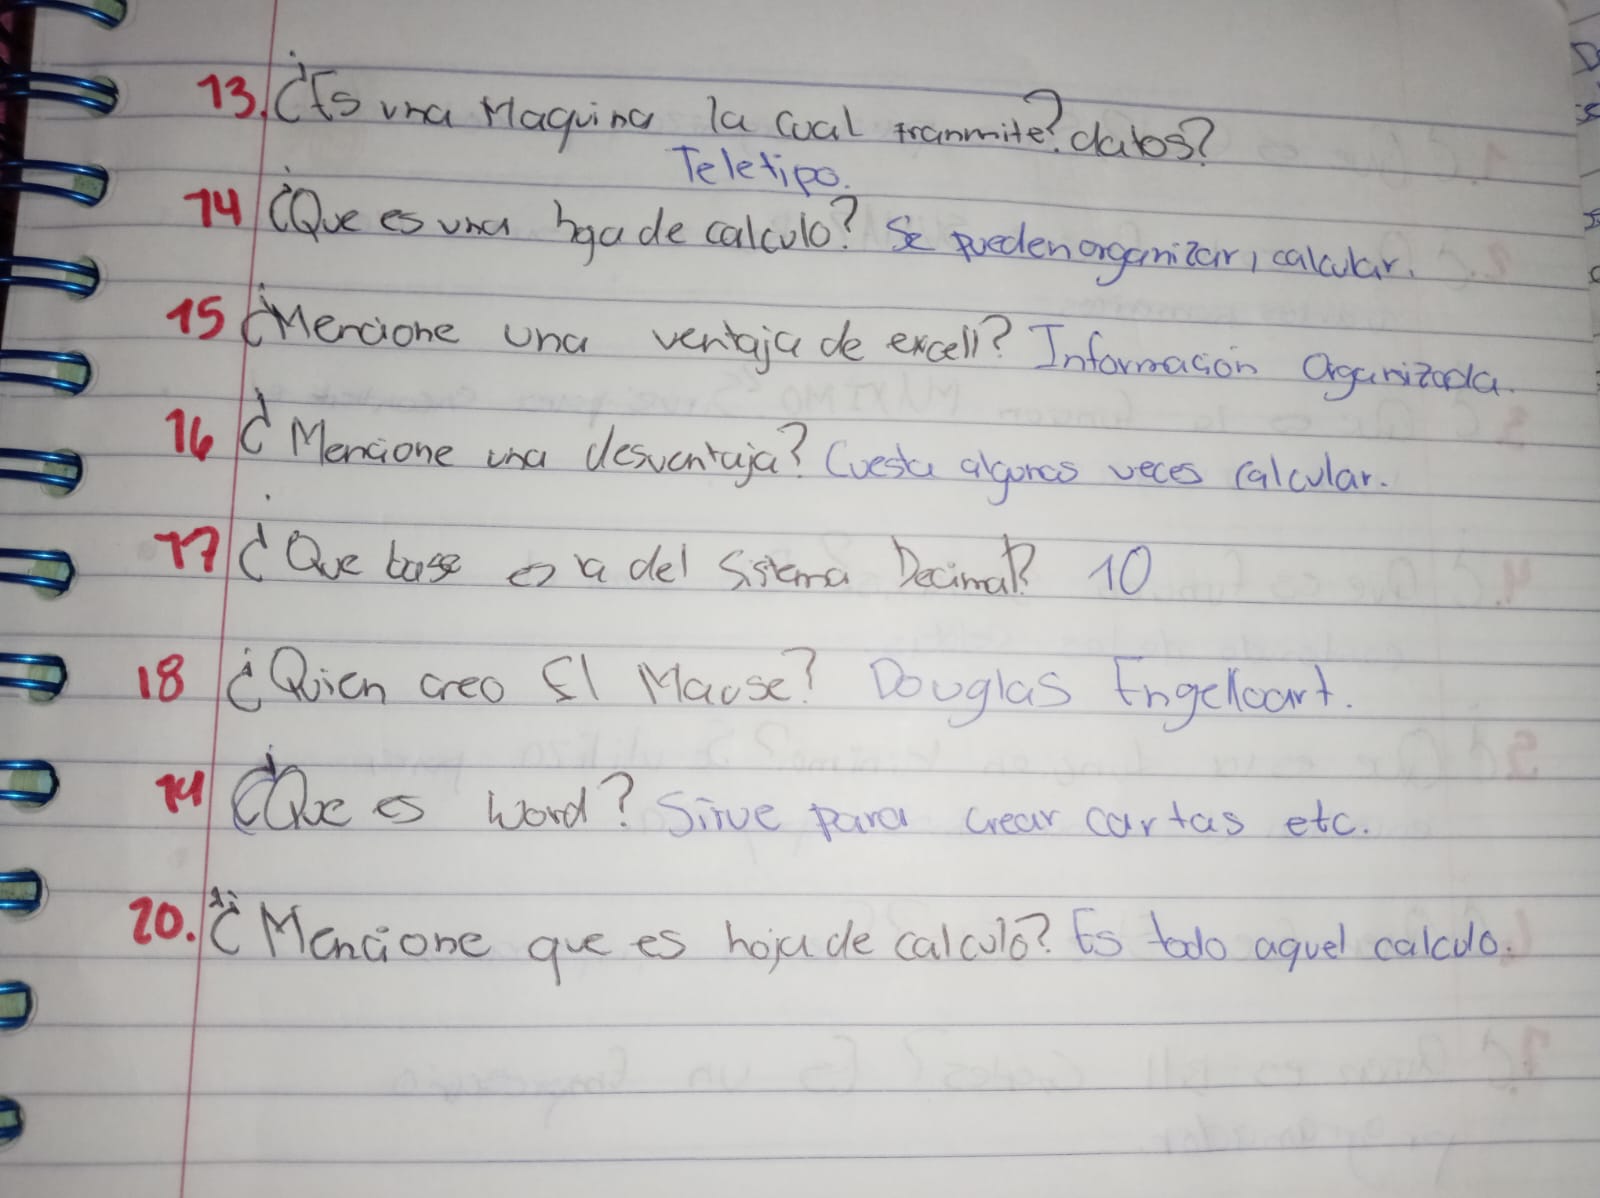 13. ¿Es una Maquina la cual tranmite? datos?
Teletipo.
14 ¿Que es una hoja de calculo? Se pueden organizar, calcular.
15 ¿Mencione una ventaja de excell? Información Organizada.
16 ¿Mencione una desventaja? Cuesta algunas veces calcular.
17 ¿Que base es a del Sistema Decimal? 10
18 ¿Quien creo El Mause? Douglas Engelbart.
19 ¿Que es Word? Sirve para crear cartas etc.
20. ¿Mencione que es hoja de calculo? Es todo aquel calculo.